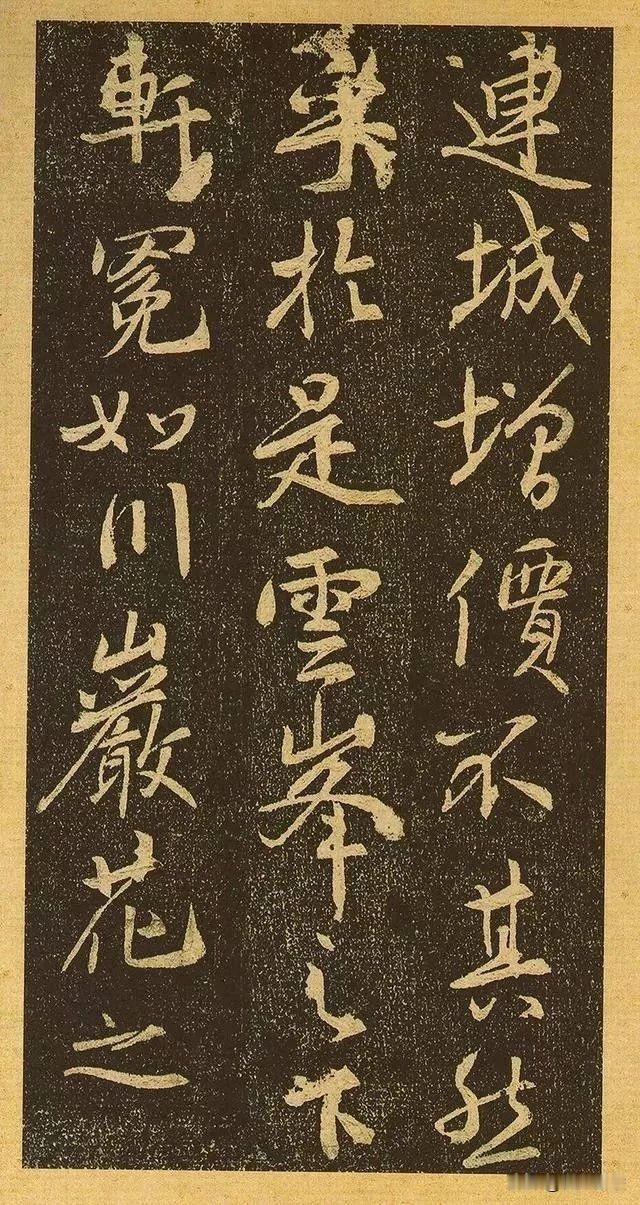 連城增價不其然
於是雲峯之下
軒冕如川巖花之